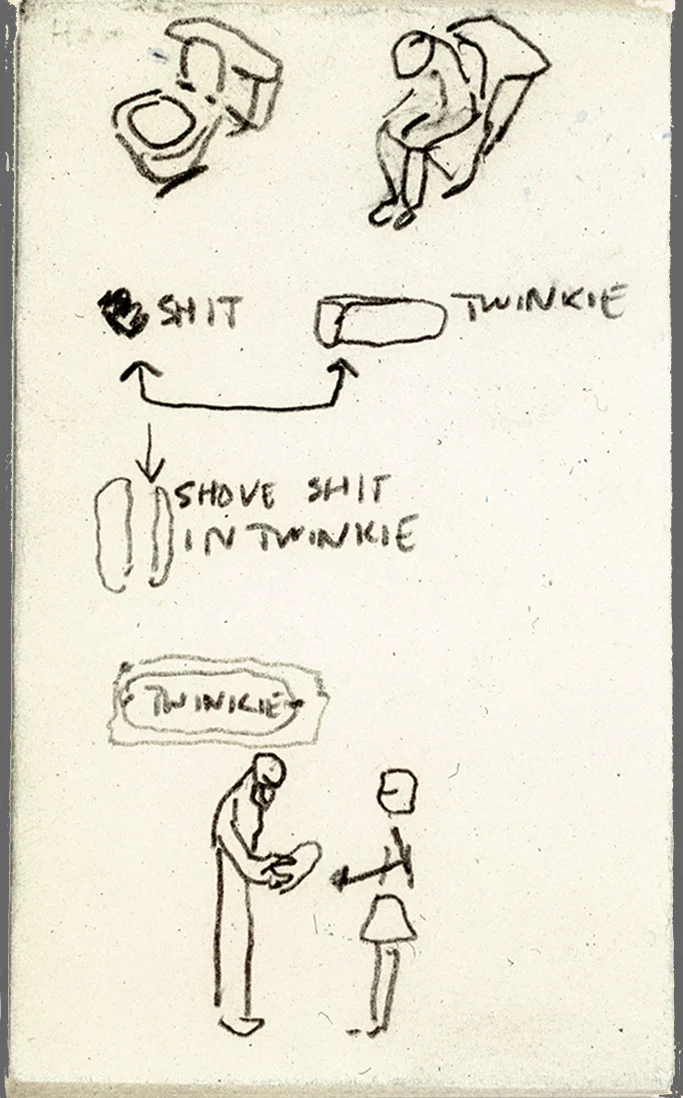 SHIT
TWINKIE
SHOVE SHIT
IN TWINKIE
TWINKIE